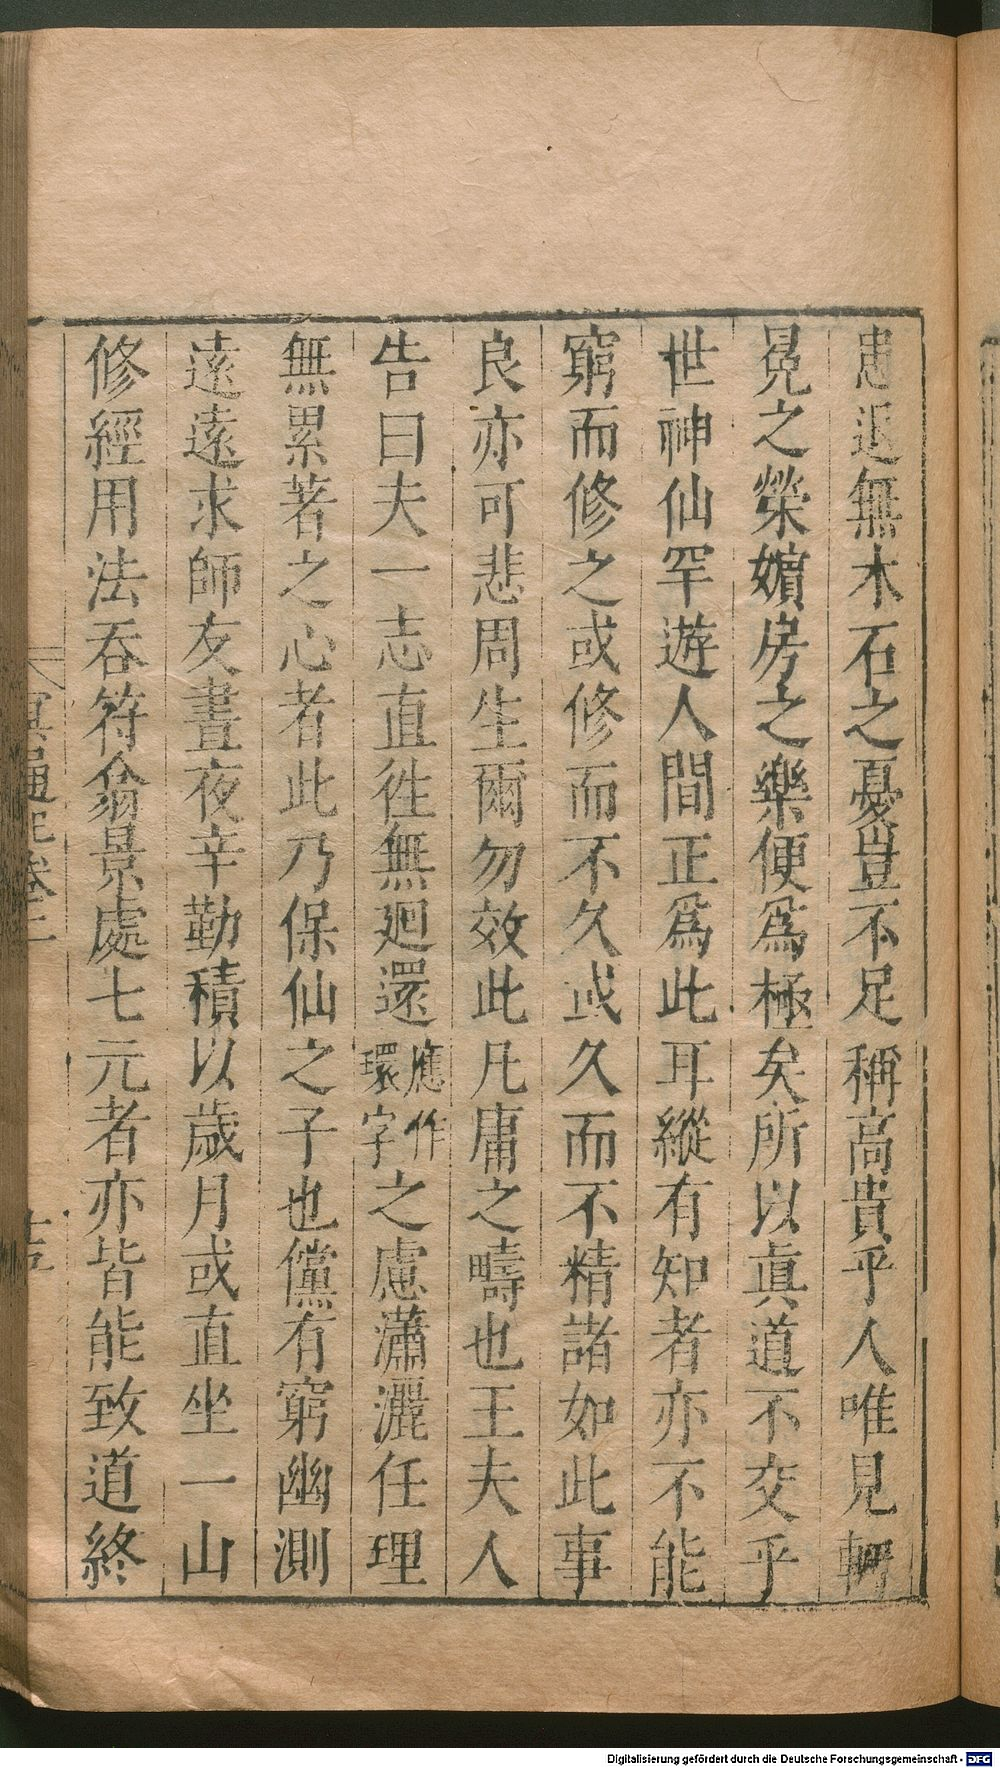 患退無木石之憂豈不足稱高貴乎人唯見軒
冕之榮嬪房之樂便爲極矣所以眞道不交乎
世神仙罕遊人間正爲此耳縱有知者亦不能
窮而修之或修而不久或久而不精諸如此事
良亦可悲周生爾勿效此凡庸之疇也王夫人
告曰夫一志直徃無廻還應作環字之慮瀟灑任理
無累著之心者此乃保仙之子也儻有窮幽測
遠遠求師友晝夜辛勤積以歲月或直坐一山
修經用法吞符翕景處七元者亦皆能致道終
冥通記卷二
Digitalisierung gefördert durch die Deutsche Forschungsgemeinschaft - DFG